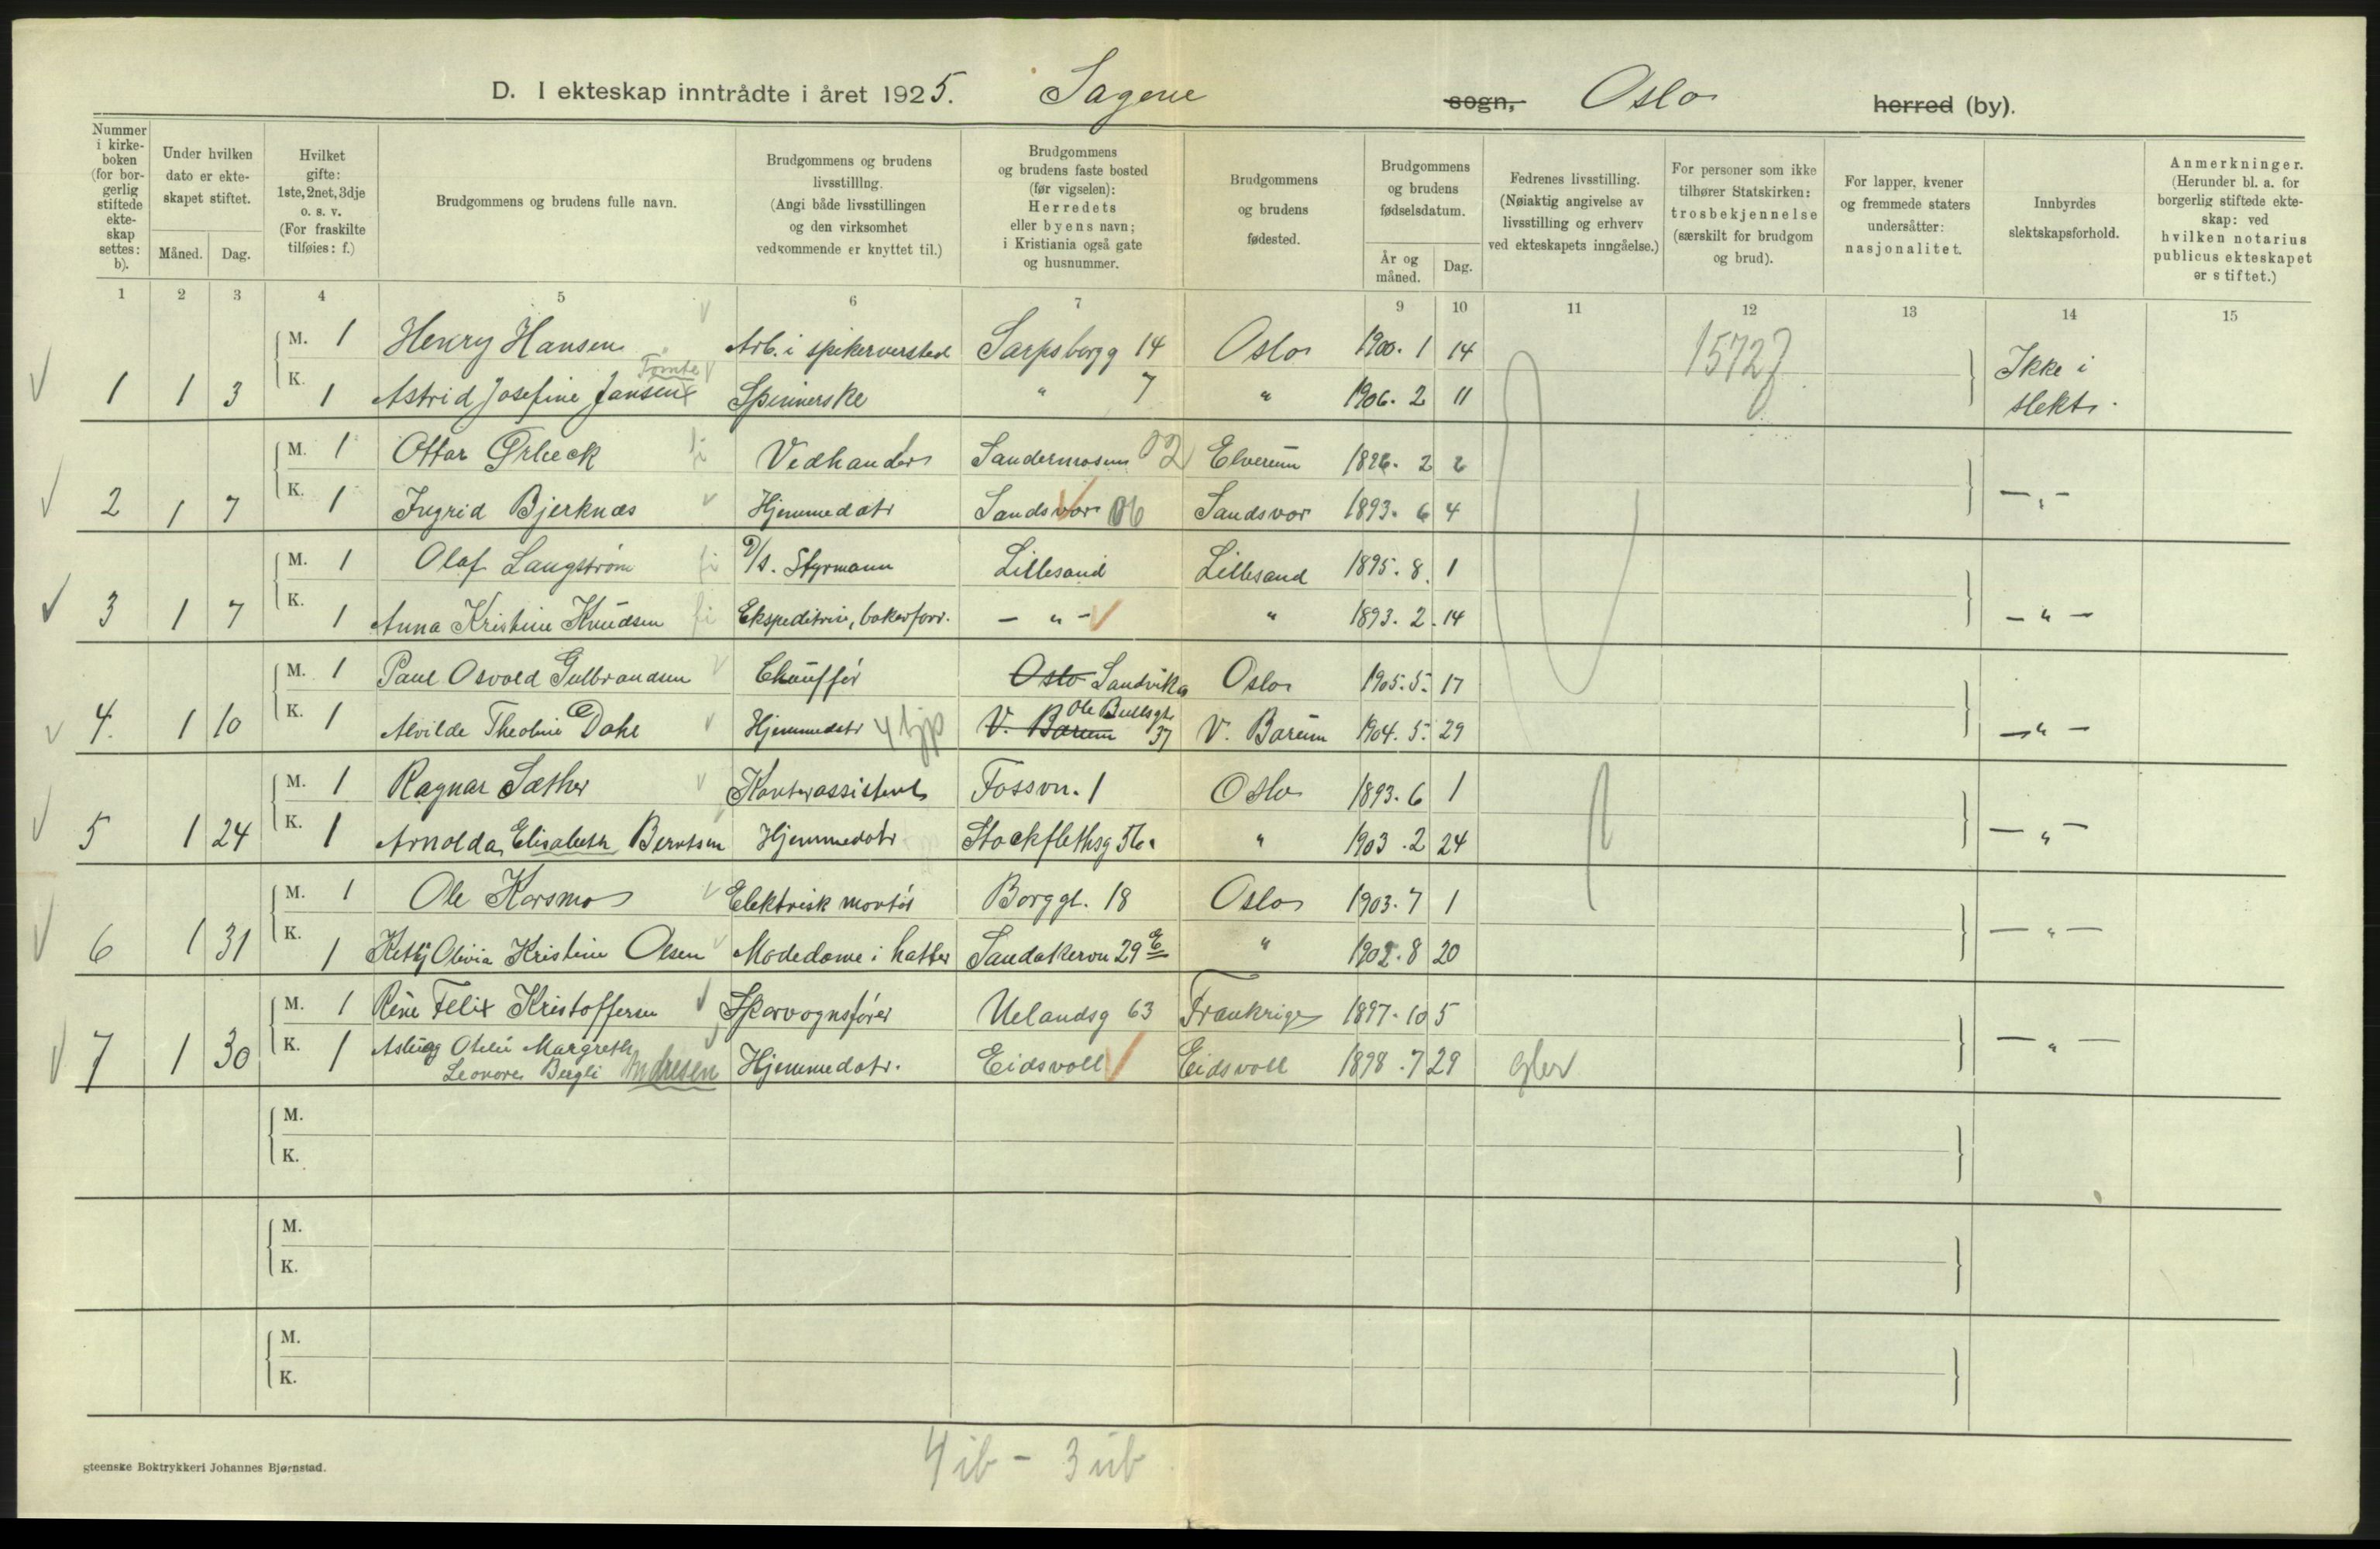 D. I ekteskap inntrådte i året 1925. Sagene sogn, Oslo herred (by).
Nummer i kirkeboken (for borgerlig stiftede ekteskap settes: b).
Under hvilken dato er ekteskapet stiftet.
Måned. Dag.
Hvilket gifte: 1ste, 2net, 3dje o. s. v. (For fraskilte tilføies: f.)
Brudgommens og brudens fulle navn.
Brudgommens og brudens livsstilling. (Angi både livsstillingen og den virksomhet vedkommende er knyttet til.)
Brudgommens og brudens faste bosted (før vigselen): Herredets eller byens navn; i Kristiania også gate og husnummer.
Brudgommens og brudens fødested.
Brudgommens og brudens fødselsdatum.
År og måned. Dag.
Fedrenes livsstilling. (Nøiaktig angivelse av livsstilling og erhverv ved ekteskapets inngåelse.)
For personer som ikke tilhører Statskirken: trosbekjennelse (særskilt for brudgom og brud).
For lapper, kvener og fremmede staters undersåtter: nasjonalitet.
Innbyrdes slektskapsforhold.
Anmerkninger. (Herunder bl. a. for borgerlig stiftede ekteskap: ved hvilken notarius publicus ekteskapet er stiftet.)
1 2 3 4 5 6 7 9 10 11 12 13 14 15
M. 1 Henry Hansen Arb. i spikerversted Sarpsborgg 14 Oslo 1900. 1 14 15727 Ikke i
Tomte
1 1 3 K. 1 Astrid Josefine Jansen Spinnerske " 7 " 1906. 2 11 slekt.
M. 1 Ottar Ørbeck Vedhandler Sandermosen 02 Elverum 1896. 2 2
2 1 7 K. 1 Ingrid Bjerknæs Hjemmedatr Sandsvær 06 Sandsvær 1893. 6 4 — " —
M. 1 Olaf Langstrøm D/s. Styrmann Lillesand Lillesand 1895. 8. 1
3 1 7 K. 1 Anna Kristine Knudsen Ekspeditrise, bakerforr. — " — " 1893. 2. 14 — " —
M. 1 Paul Osvald Gulbrandsen Chauffør Oslo Sandvika Oslo 1905. 5. 17
Ole Bullsgt.
4. 1 10 K. 1 Alvilde Theoline Dahl Hjemmedatr 4 hjp V. Bærum 37 V. Bærum 1904. 5. 29 — " —
M. 1 Ragnar Sæther Kontorassistent Fossvn. 1 Oslo 1893. 6 1
5 1 24 K. 1 Arnolda Elisabeth Berntsen Hjemmedatr Stockflethsg 56a " 1903. 2 24 — " —
M. 1 Ole Korsmo Elektrisk montør Borggt. 18 Oslo 1903. 7 1
6 1 31 K. 1 Ketty Olivia Kristine Olsen Modedame i hatter Sandakervn 29 E " 1902. 8 20 — " —
M. 1 Réne Felix Kristoffersen Sporvognsfører Uelandsg 63 Frankrige 1897. 10 5
7 1 30 K. 1 Aslaug Otelie Margreth Hjemmedatr. Eidsvoll Eidsvoll 1898. 7 29 — " —
Leonore Bergli Andresen
M.
K.
M.
K.
M.
K.
gteenske Boktrykkeri Johannes Bjørnstad.
4 ib – 3 ub